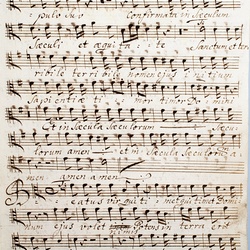 pulo suo Confirmata in sæculum
Sæculi et æquitate Sanctum et ter
ribile terribile nomen ejus initium
Sapientiæ timor timor Domini
Et in Sæcula sæculorum
culorum amen et in Sæcula Sæculorum a
men amen amen
Beatus vir qui timet qui timet Domi
num ejus volet potens in terra erit